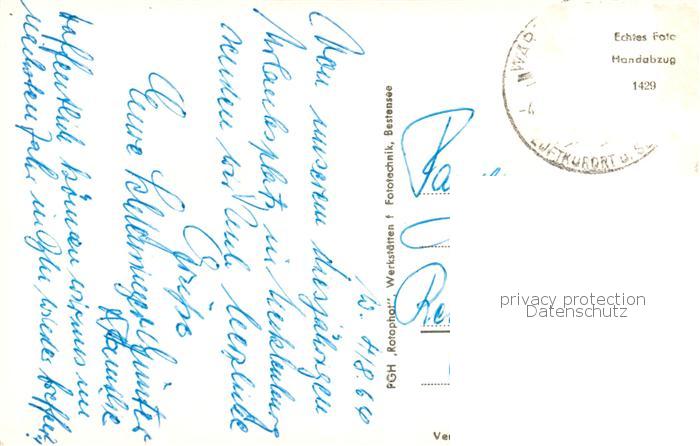 d. 4/8.64
Von unserem diesjährigen
Urlaubsplatz in Mecklenburg
senden wir Euch herzliche
Grüße
Eure Schwiegermutter
Familie
Hoffentlich können wir uns im
nächsten Jahr in wieder treffen.
PGH „Rotophot" Werkstätten f Fototechnik, Bestensee
Echtes Foto
Handabzug
1429
LUFTKURORT U. SE
-4
privacy protection
Datenschutz
Ver